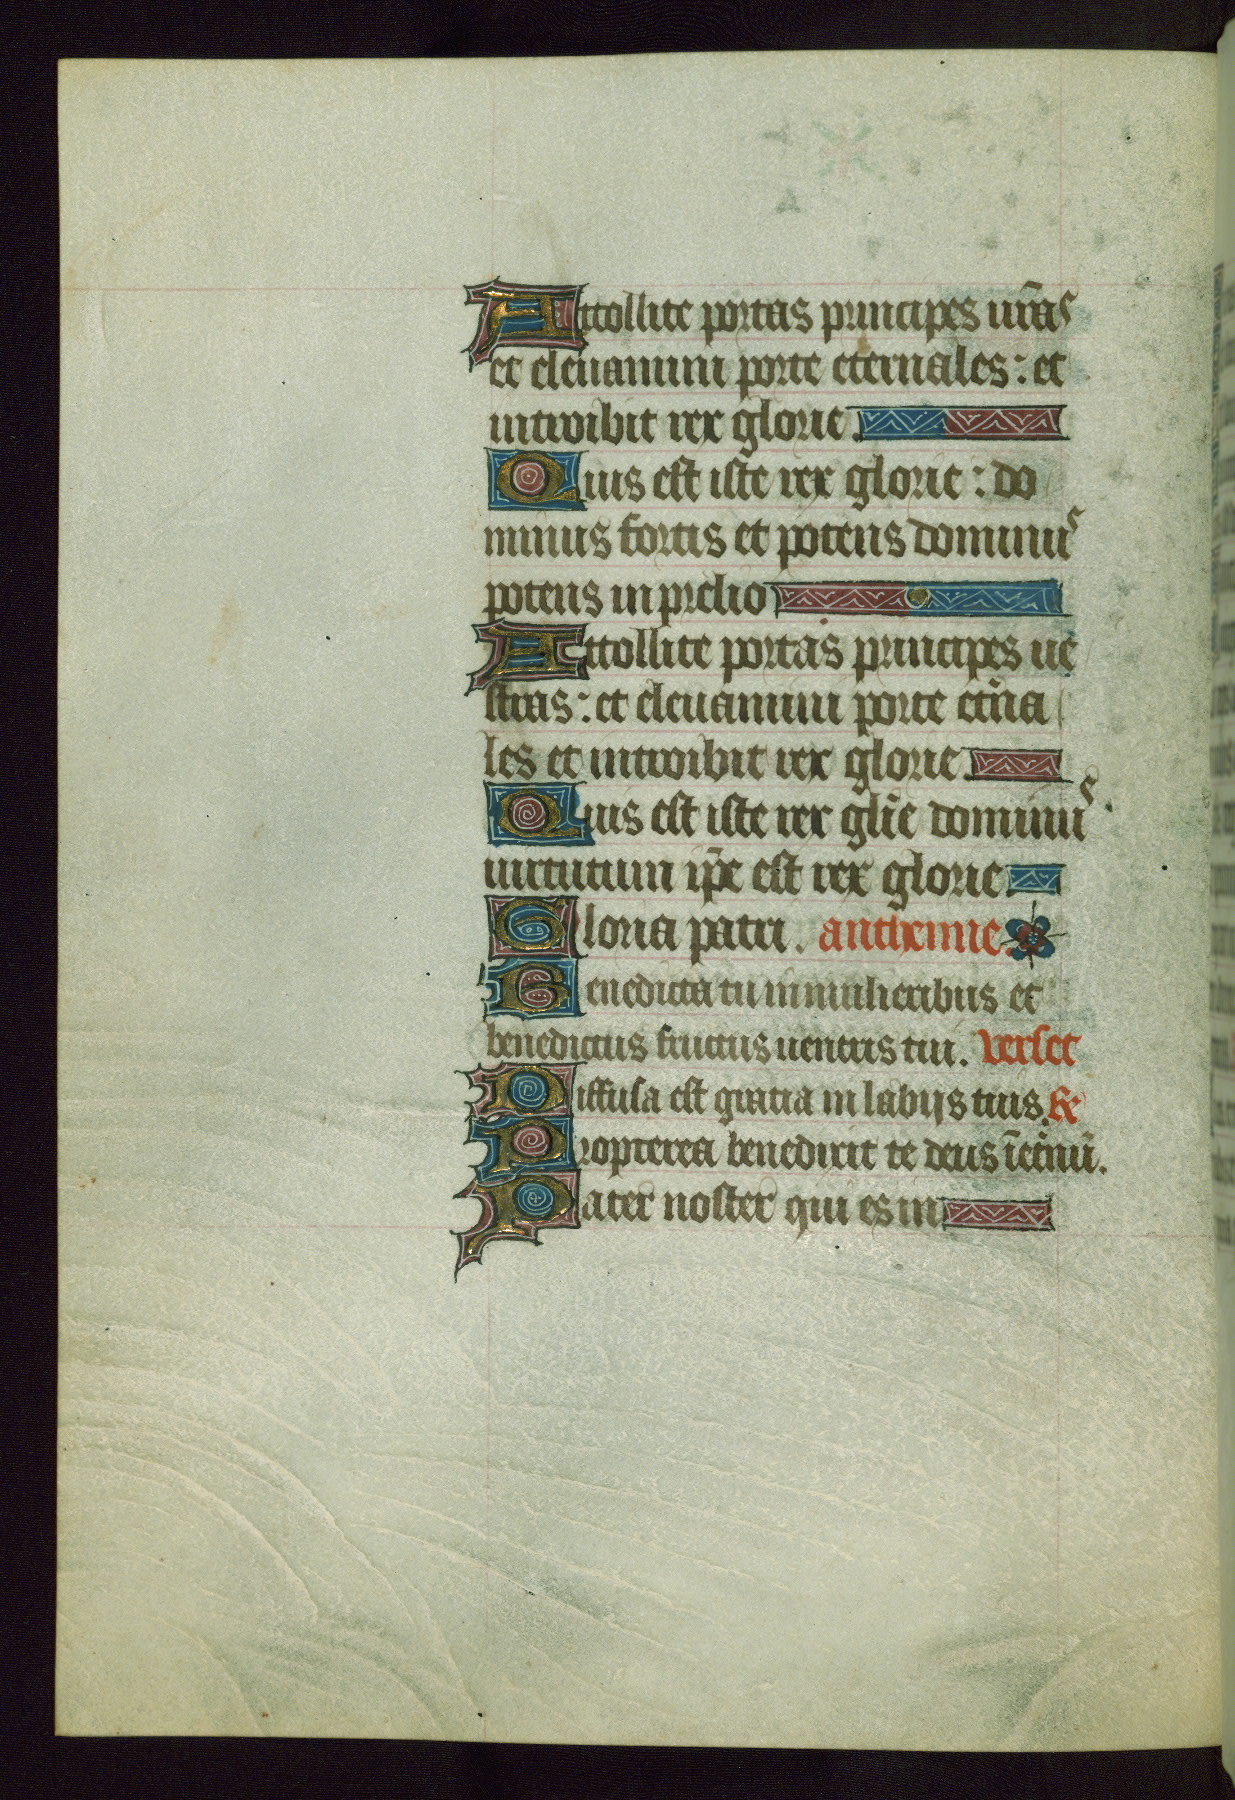 Attollite portas principes ur̄as
et eleuamini porte eternales : et
introibit rex glorie.
Quis est iste rex glorie : do
minus fortis et potens dominus
potens in prelio
Attollite portas principes ue
stras : et eleuamini porte et̄na
les et introibit rex glorie.
Quis est iste rex gl̄ie dominus
uirtutum ip̄e est rex glorie
Gloria patri . anthemne.
Benedicta tu in mulieribus et
benedictus fructus uentris tui . verset
Diffusa est gratia in labijs tuis. R
Propterea benedixit te deus ī et̄nū .
Pater noster qui es in